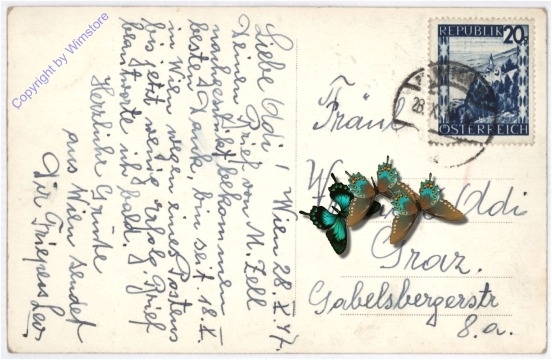 Copyright by Wimstore
Wien 28. X. 47.
Liebe Udi!
Deinen Brief von M. Zell
nachgeschickt bekommen
besten Dank, bin seit 18. X.
in Wien wegen eines Postens
bis jetzt wenig Erfolg. Brief
beantworte ich bald.
Herzliche Grüße
aus Wien sendet
Dir
REPUBLIK
20g
ÖSTERREICH
28.
Fräul
Udi
Graz.
Gabelsbergerstr
8.a.